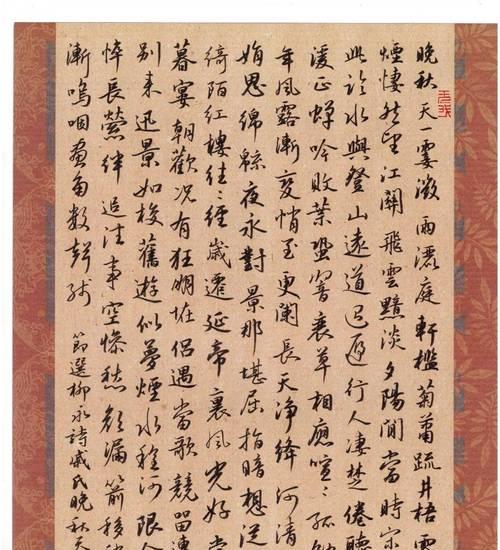 晚秋天一霎微雨灑庭軒檻菊蕭疏井梧零
煙悽然望江關飛雲黯淡夕陽間當時宋
此臨水與登山遠道迢遞行人凄楚倦聽
湲正蟬吟敗葉蛩響衰草相應喧〻孤館
年風露漸變悄至更闌長天净絳河清
娟思綿綿夜永對景那堪屈指暗想從
綺陌紅樓往〻經歲遷延帝裏風光好當
暮宴朝歡况有狂朋怪侶遇當歌競留連
別來迅景如梭舊遊似夢煙水程何限
悴長縈絆追往事空慘愁顏漏箭移稍
漸嗚咽畫角數聲殘 節選柳永詩戚氏晚秋天